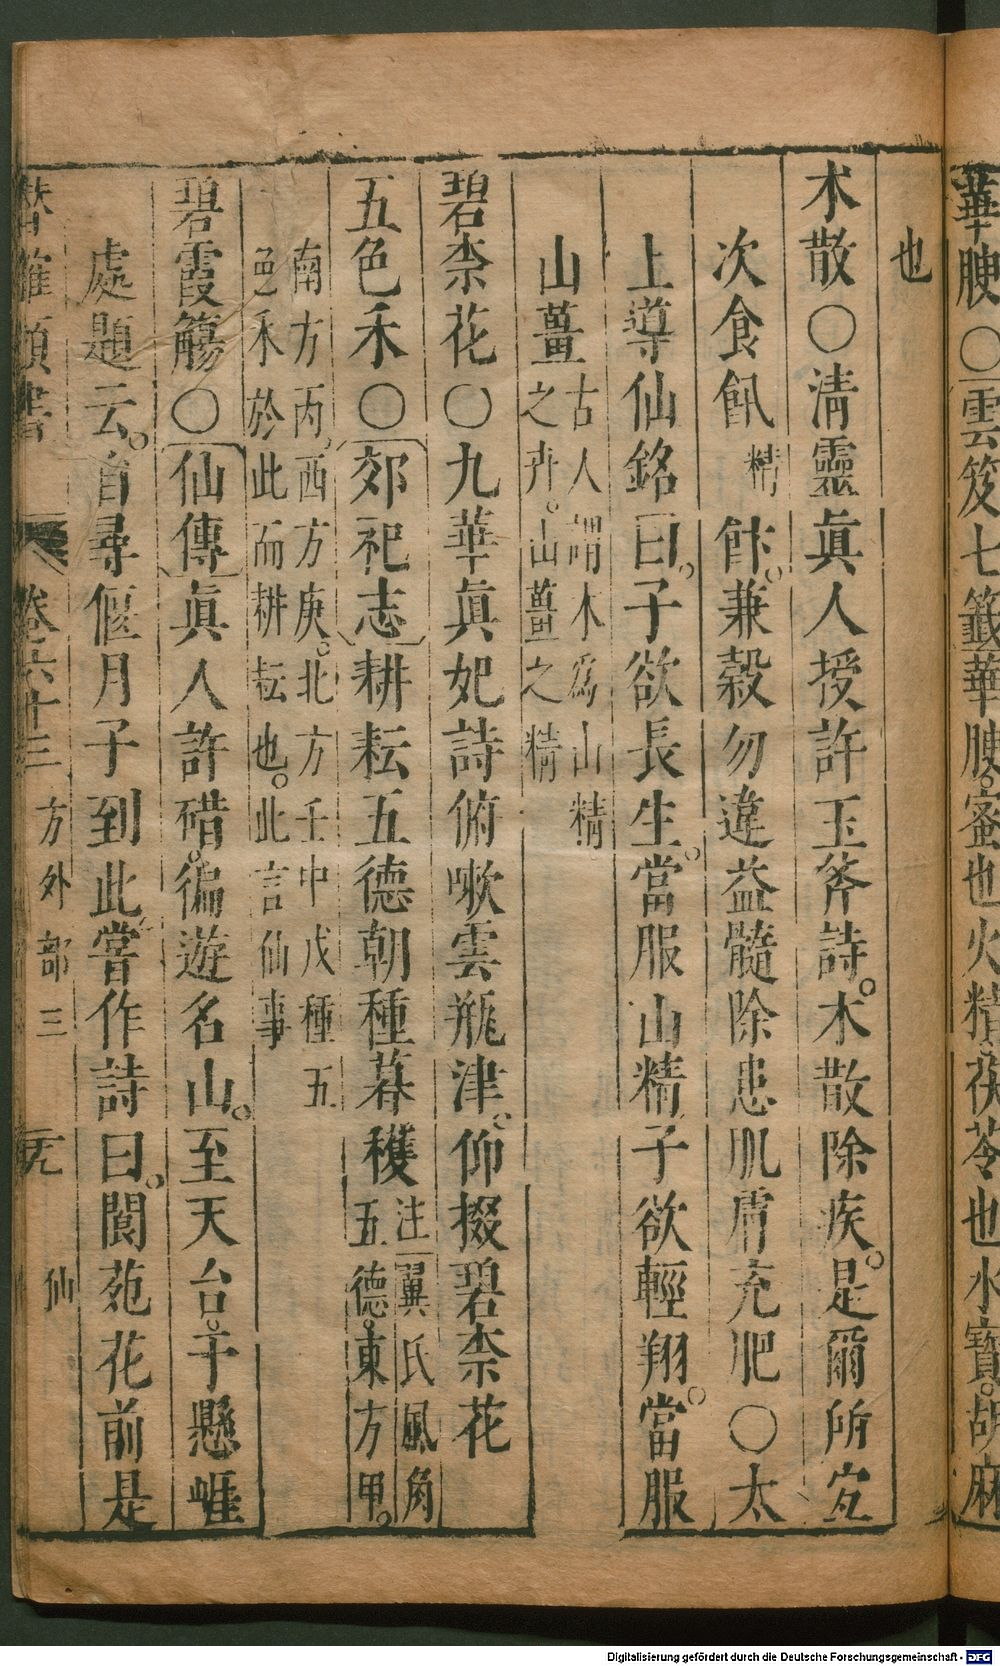 華腴○雲笈七籤華腴蜜也火精茯苓也水寶胡麻
也
朮散○清靈眞人授許玉斧詩朮散除疾是爾所宜
次食䬳精飰兼穀勿違益髓除患肌膚充肥○太
上導仙銘曰子欲長生當服山精子欲輕翔當服
山薑古人謂朮爲山精
之卉山薑之精
碧柰花○九華眞妃詩俯嗽雲瓶津仰掇碧柰花
五色禾○郊祀志耕耘五德朝種暮穫注翼氏風角
五德東方甲
南方丙西方庚北方壬中戊種五
色禾於此而耕耘也此言仙事
碧霞觴○仙傳眞人許碏徧遊名山至天台于懸崕
處題云自尋偃月子到此嘗作詩曰閬苑花前是
潛確類書 卷六十三 方外部三 仙
Digitalisierung gefördert durch die Deutsche Forschungsgemeinschaft - DFG